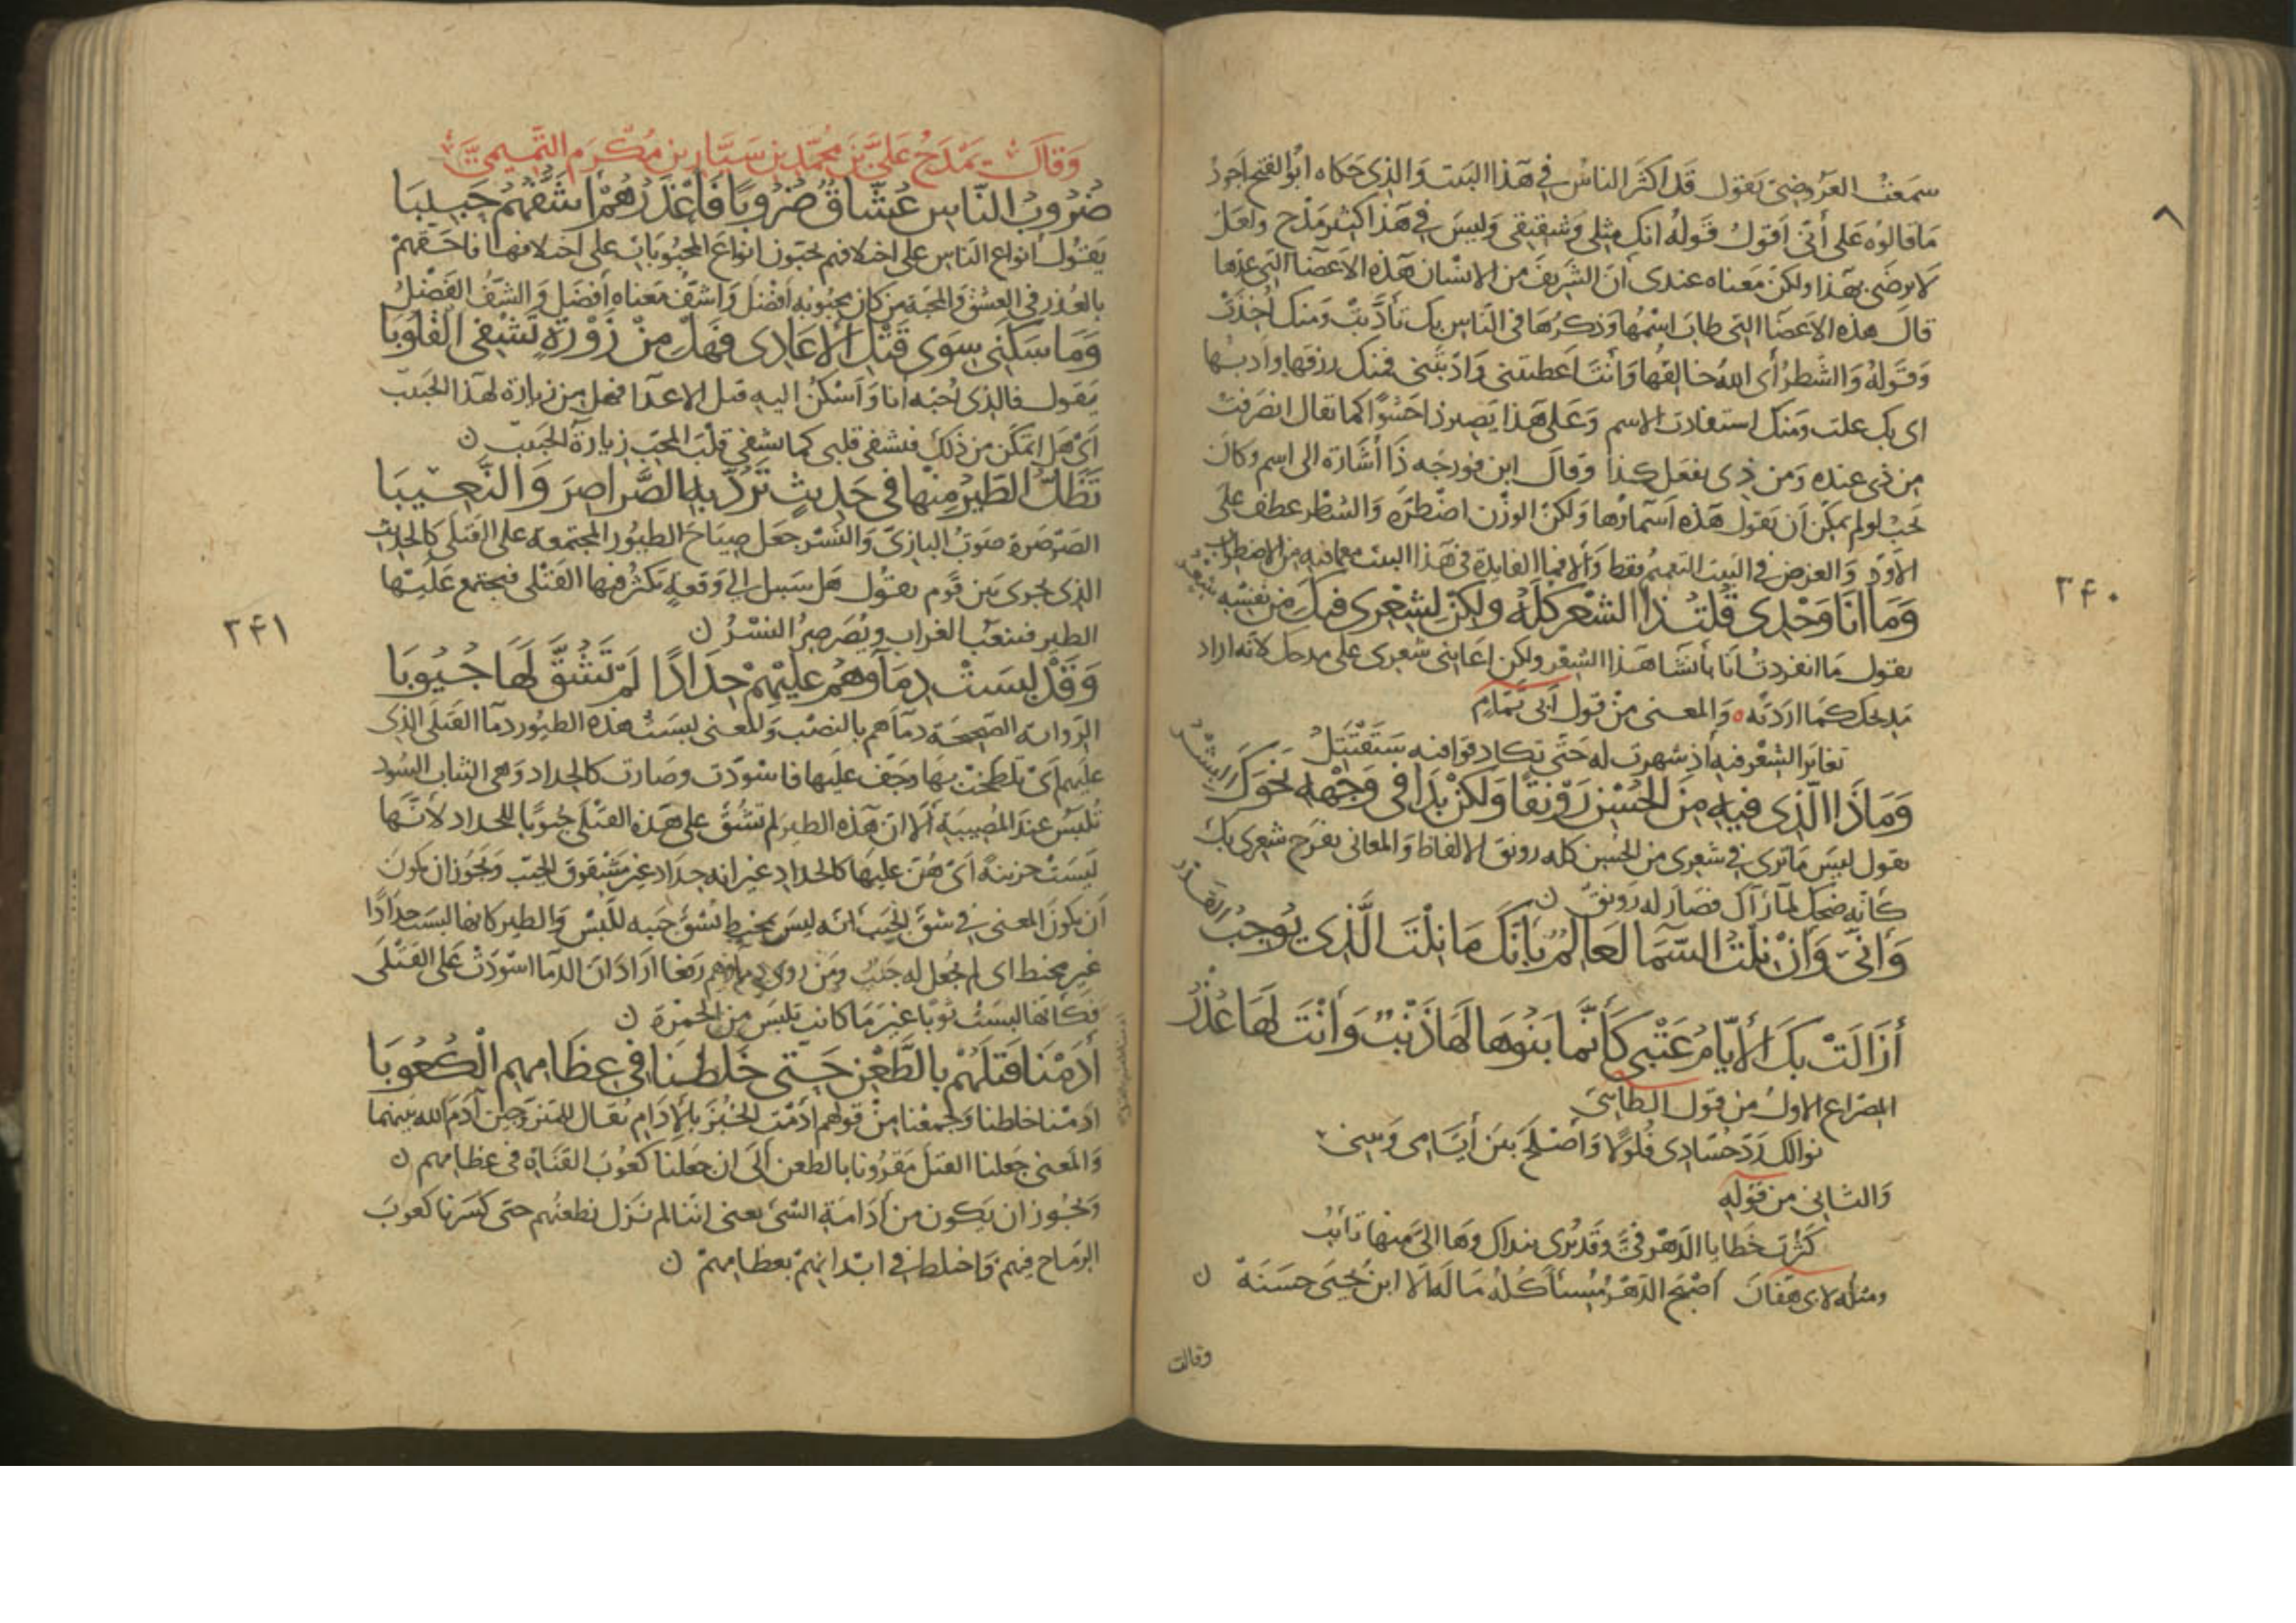 سمعت العروضي يقول قد اكثر الناس في هذا البيت والذي حكاه ابو الفتح اجود
ما قالوه على أنّي اقول قوله انك مثلي وشقيقي وليس في هذا كثير مدح ولعل
لا يرضى بهذا ولكن معناه عندي أن الشريف من الانسان هذه الاعضا التي عدها
قال هذه الاعضا التي طاب اسمها وذكرها في الناس بك تأدبت ومنك اخذت
وقوله والشطر أي الله خالقها وأنت اعطيتني وادبتني فمنك رزقها وادبها
اي بك علت ومنك استفادت الاسم وعلى هذا يصير ذا حشوا كما تقال انصرفت
من ذي عنده ومن ذي يفعل كذا وقال ابن فورجه ذا أشارة الى اسم وكان
يجب لو لم يمكن ان يقول هذه اسماؤها ولكن الوزن اضطره والشطر عطف على
الاول والغرض في البيت التعميم فقط والا فما الفايدة في هذا البيت مع ما فيه من الاضطراب
وَمَا أنَا وَحْدِي قُلتُ ذا الشعر كلّهُ ولكنْ لِشِعْرِي فيكَ مِن نفسِه شِعْرُ
يقول ما انفردتُ انا بأنشا هذا الشعر ولكن اعانني شعري على مدحك لانه اراد
مديحك كما اردته ٥ والمعنى من قول أبي تمّام
تغاير الشعر فيه أذ سهرت له حتّى تكاد قوافيه ستقتتل
وَمَاذَا الّذِي فيهِ مِنَ الحُسْنِ رَوْنقًا وَلكنْ بَدَا فِي وَجْهِهِ نَحْوَكَ البِشْرُ
يقول ليس ما ترى في شعري من الحسن كله رونق الالفاظ والمعاني يفرح شعري بك
كأنه ضحك لما رآك فصار له رونق ن
وَأنّي وَانْ نِلتَ السّمَا لَعَالِمٌ بِأنكَ مَا نِلْتَ الّذِي يُوجِبُ القَدْرُ
أزَالَتْ بِكَ الأيّامُ عَتْبِي كَأنّمَا بَنُوهَا لَهَا ذَنْبٌ وَأنْتَ لَهَا عُذْرُ
المصراع الاول من قول الطايى
نوالك رد حسادي فلولا وأصلح بين أيّامي وبيني
والثاني من قوله
كثرت خطايا الدهر فيّ وقد يرى بنداك وها اليّ منها تايب
ومثله لابي هفان أصبح الدهر مسيأ كله ما له الا ابن يحيى حسنه ن
وقال
٣٤٠
وَقَالَ يَمْدَحُ عَليّ بن محمّد بن سَيّار بن مُكْرَم التّميمي
ضُرُوبُ النّاسِ عُشّاقٌ ضُرُوبًا فَأعْذَرُهُمْ أشَفّهُمُ حَبِيبَا
يقول انواع الناس على اختلافهم يحبّون انواع المحبوبات على اختلافها فاحقهم
بالعذر في العشق والمحبة من كان محبوبه افضل واشف معناه أفضل والشف الفضل
وَمَا سَكَني سِوَى قَتْلِ الأعَادِي فَهَلْ مِنْ زَوْرَةٍ تَشْفِي القُلُوبَا
يقول فالذي احبه أنا وأسكن اليه قتل الاعدا فهل من زيارة لهذا الحبيب
أي هل أتمكن من ذلك فتشفي قلبي كما تشفي قلب المحب زيارة الحبيب ن
تَظَلُّ الطّيْرُ مِنْهَا فِي حَدِيثٍ تَرُدُّ بِهِ الصّرَاصِرَ وَالنّعِيبَا
الصرصرة صوت البازي والنسر جعل صياح الطيور المجتمعة على القتلى كالحديث
الذي يجري بين قوم يقول هل سبيل الى وقعة تكثر فيها القتلى فتجتمع عليها
الطير فينعب الغراب ويصرصر النسر ن
وَقَدْ لبسَتْ دِمَآوهُمُ عَليْهِمْ حِدَادًا لَمْ تَشُقَّ لَهَا جُيُوبَا
الرواية الصحيحة دمآهم بالنصب والمعنى لبست هذه الطيور دمآ القتلى الذي
عليهم أي تلطخت بها وجف عليها فاسودّت وصارت كالحداد وهي الثياب السود
تلبس عند المصيبة ألا ان هذه الطير لم تشق على هذه القتلى جيوبا للحداد لأنّها
ليست حزينة أي هن عليها كالحداد غير انه حداد غير مشقوق الجيب ويجوز ان يكون
أن يكون المعنى في شق الجيب انه ليس بمخيط يشق جيبه للبس والطير كانها لبست حدادًا
غير مخيط اي لم يجعل له جيب ومن روى دماؤهم رفعا اراد ان الدما اسودت على القتلى
فكأنها لبست ثوبا غير ما كانت تلبس من الحمرة ن
أدَمْنَا قَتلَهُمْ بِالطّعْنِ حَتّى خَلطْنَا فِي عِظَامِهِمِ الْكُعُوبَا
ادمنا خلطنا وجمعنا من قولهم ادمت الخبز بالإدام يقال للمتزوجين آدم الله بينهما
والمعنى جعلنا القتل مقرونا بالطعن ألى ان جعلنا كعوب القناة في عظامهم ن
ويجوز ان يكون من أدامة الشئ يعني اننا لم نزل نطعنهم حتى كسرنا كعوب
الرماح فيهم واختلط في ابدانهم بعظامهم ن
٣٤١